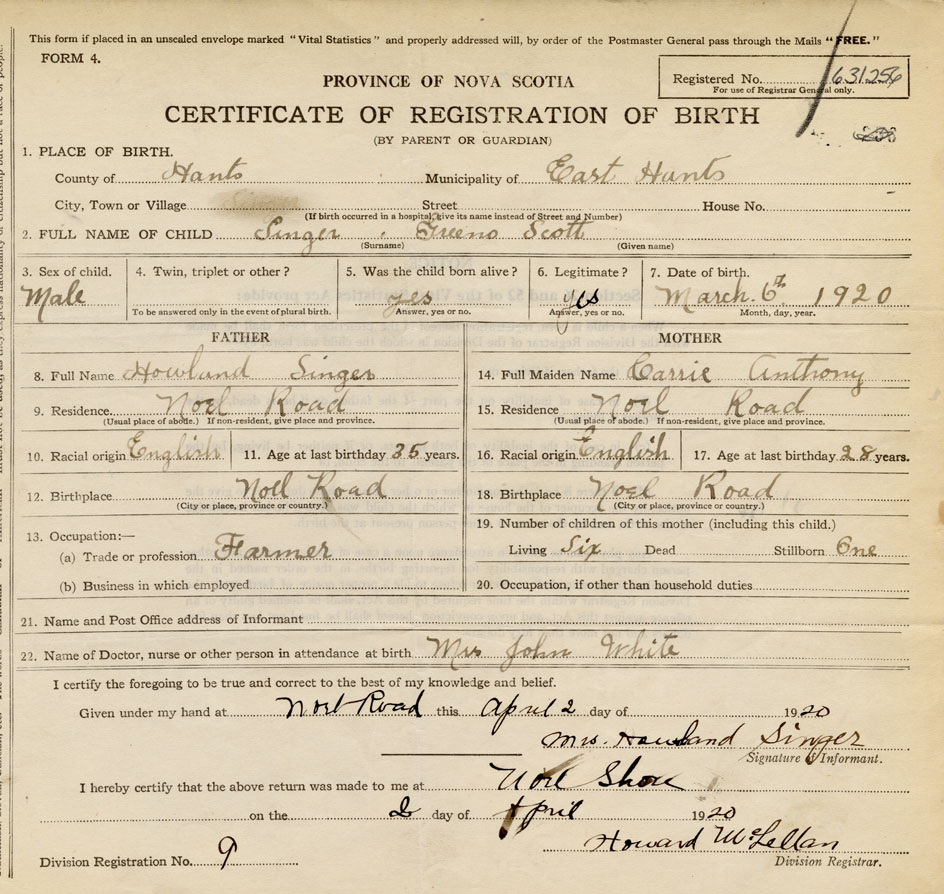 This form if placed in an unsealed envelope marked "Vital Statistics" and properly addressed will, by order of the Postmaster General pass through the Mails "FREE."
FORM 4.
PROVINCE OF NOVA SCOTIA
Registered No. 631256
For use of Registrar General only.
CERTIFICATE OF REGISTRATION OF BIRTH
(BY PARENT OR GUARDIAN)
1. PLACE OF BIRTH.
County of Hants Municipality of East Hants
City, Town or Village Street House No.
(If birth occurred in a hospital, give its name instead of Street and Number)
2. FULL NAME OF CHILD Singer Greeno Scott
(Surname) (Given name)
3. Sex of child. 4. Twin, triplet or other? 5. Was the child born alive? 6. Legitimate? 7. Date of birth.
Male yes yes March. 6th 1920
To be answered only in the event of plural birth. Answer, yes or no. Answer, yes or no. Month, day, year.
FATHER MOTHER
8. Full Name Howland Singer 14. Full Maiden Name Carrie Anthony
9. Residence. Noel Road 15. Residence Noel Road
(Usual place of abode.) If non-resident, give place and province. (Usual place of abode.) If non-resident, give place and province.
10. Racial origin English 11. Age at last birthday 35 years. 16. Racial origin English 17. Age at last birthday 28 years.
12. Birthplace Noel Road 18. Birthplace Noel Road
(City or place, province or country.) (City or place, province or country.)
13. Occupation:— 19. Number of children of this mother (including this child.)
(a) Trade or profession Farmer Living Six Dead Stillborn One
(b) Business in which employed 20. Occupation, if other than household duties
21. Name and Post Office address of Informant
22. Name of Doctor, nurse or other person in attendance at birth Mrs John White
I certify the foregoing to be true and correct to the best of my knowledge and belief.
Given under my hand at Noel Road this April 2 day of 1920
Mrs. Howland Singer
Signature of Informant.
I hereby certify that the above return was made to me at Noel Shore
on the 2 day of April 1920
Howard McLellan
Division Registration No. 9 Division Registrar.